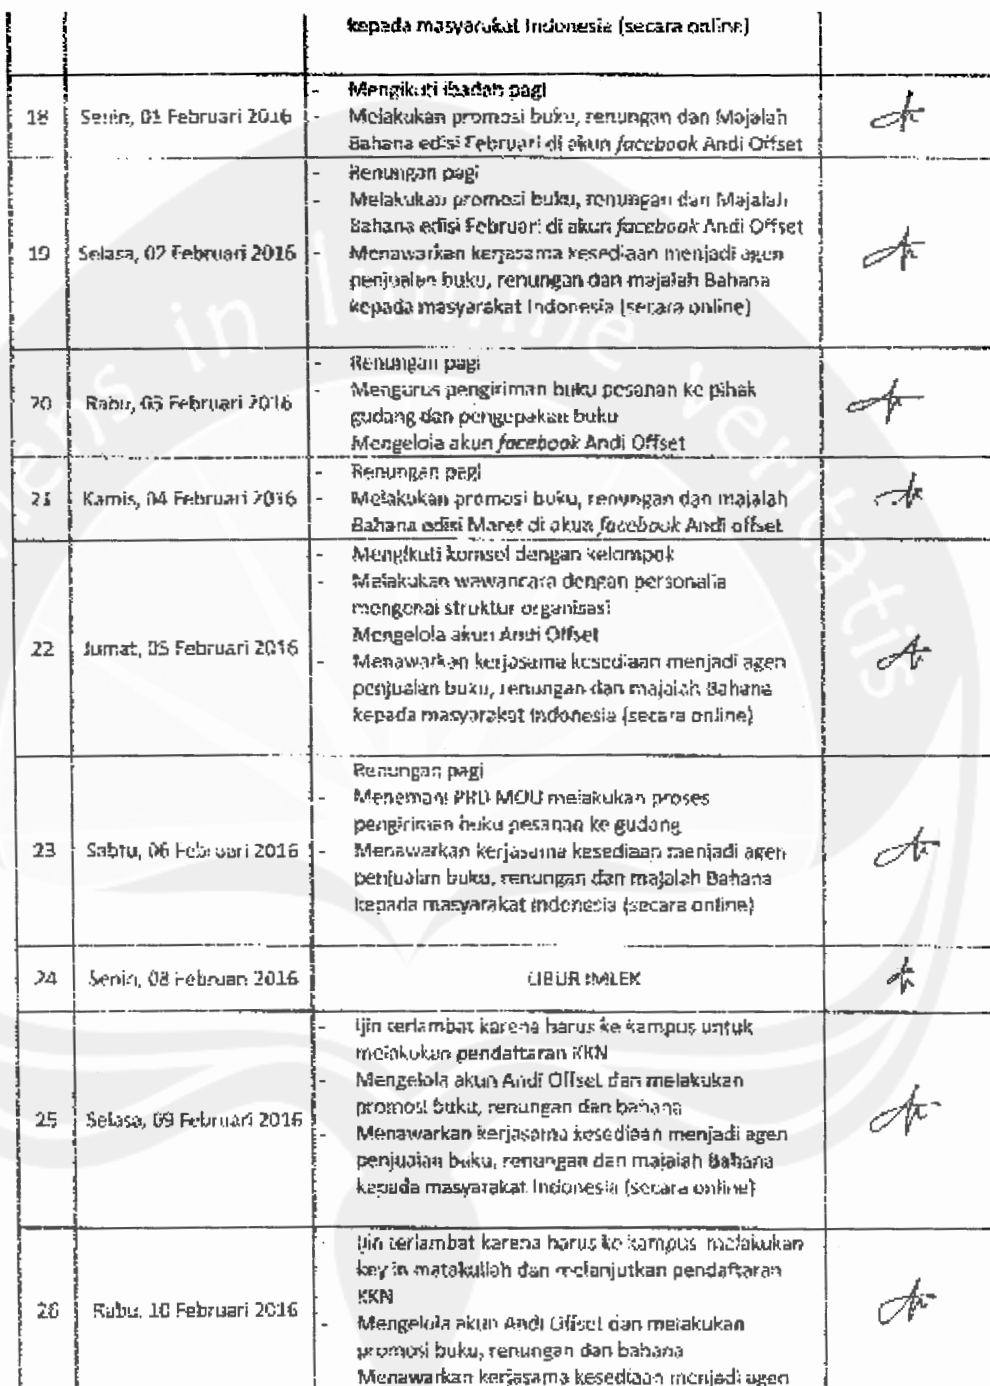 kepada masyarakat Indonesia (secara online)
18 Senin, 01 Februari 2016
- Mengikuti ibadah pagi
- Melakukan promosi buku, renungan dan Majalah
Bahana edisi Februari di akun facebook Andi Offset
19 Selasa, 02 Februari 2016
- Renungan pagi
- Melakukan promosi buku, renungan dan Majalah
Bahana edisi Februari di akun facebook Andi Offset
- Menawarkan kerjasama kesediaan menjadi agen
penjualan buku, renungan dan majalah Bahana
kepada masyarakat Indonesia (secara online)
20 Rabu, 03 Februari 2016
- Renungan pagi
- Mengurus pengiriman buku pesanan ke pihak
gudang dan pengepakan buku
Mengelola akun facebook Andi Offset
21 Kamis, 04 Februari 2016
- Renungan pagi
- Melakukan promosi buku, renungan dan majalah
Bahana edisi Maret di akun facebook Andi offset
22 Jumat, 05 Februari 2016
- Mengikuti komsel dengan kelompok
- Melakukan wawancara dengan personalia
mengenai struktur organisasi
Mengelola akun Andi Offset
- Menawarkan kerjasama kesediaan menjadi agen
penjualan buku, renungan dan majalah Bahana
kepada masyarakat Indonesia (secara online)
23 Sabtu, 06 Februari 2016
Renungan pagi
- Menemani PRD MOU melakukan proses
pengiriman buku pesanan ke gudang
- Menawarkan kerjasama kesediaan menjadi agen
penjualan buku, renungan dan majalah Bahana
kepada masyarakat Indonesia (secara online)
24 Senin, 08 Februari 2016
LIBUR IMLEK
25 Selasa, 09 Februari 2016
- Ijin terlambat karena harus ke kampus untuk
melakukan pendaftaran KKN
- Mengelola akun Andi Offset dan melakukan
promosi buku, renungan dan bahana
- Menawarkan kerjasama kesediaan menjadi agen
penjualan buku, renungan dan majalah Bahana
kepada masyarakat Indonesia (secara online)
26 Rabu, 10 Februari 2016
- Ijin terlambat karena harus ke kampus melakukan
key in matakuliah dan melanjutkan pendaftaran
KKN
- Mengelola akun Andi Offset dan melakukan
promosi buku, renungan dan bahana
Menawarkan kerjasama kesediaan menjadi agen
in lumine veritatis